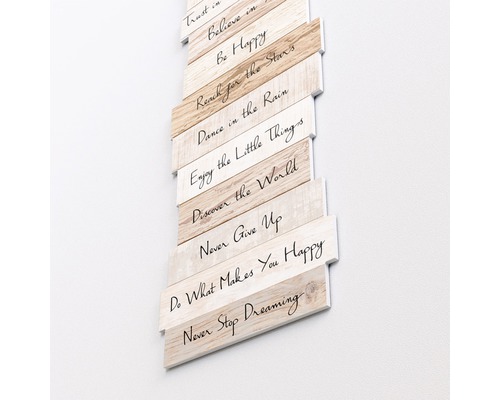 Trust in
Believe in
Be Happy
Reach for the Stars
Dance in the Rain
Enjoy the Little Things
Discover the World
Never Give Up
Do What Makes You Happy
Never Stop Dreaming